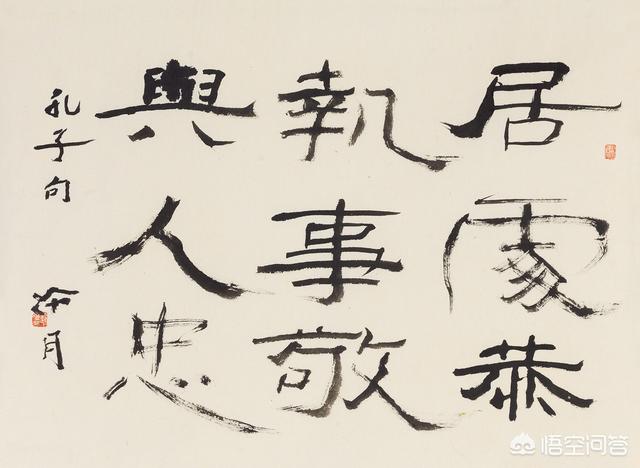 居處恭
執事敬
與人忠
孔子句
悟空问答